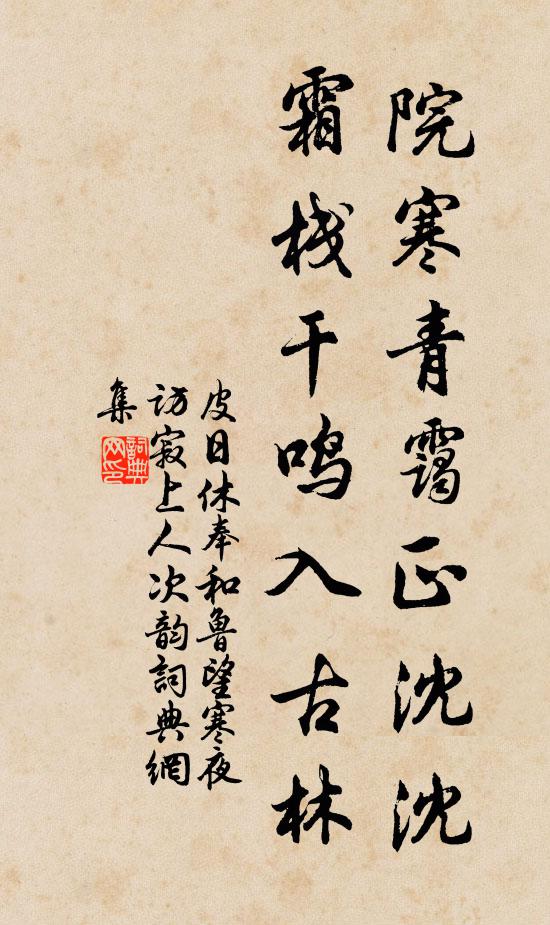 院寒青靄正沈沈
霜栈干鸣入古林
皮日休奉和魯望寒夜
访寂上人次韵詞典網
集
詞典網印